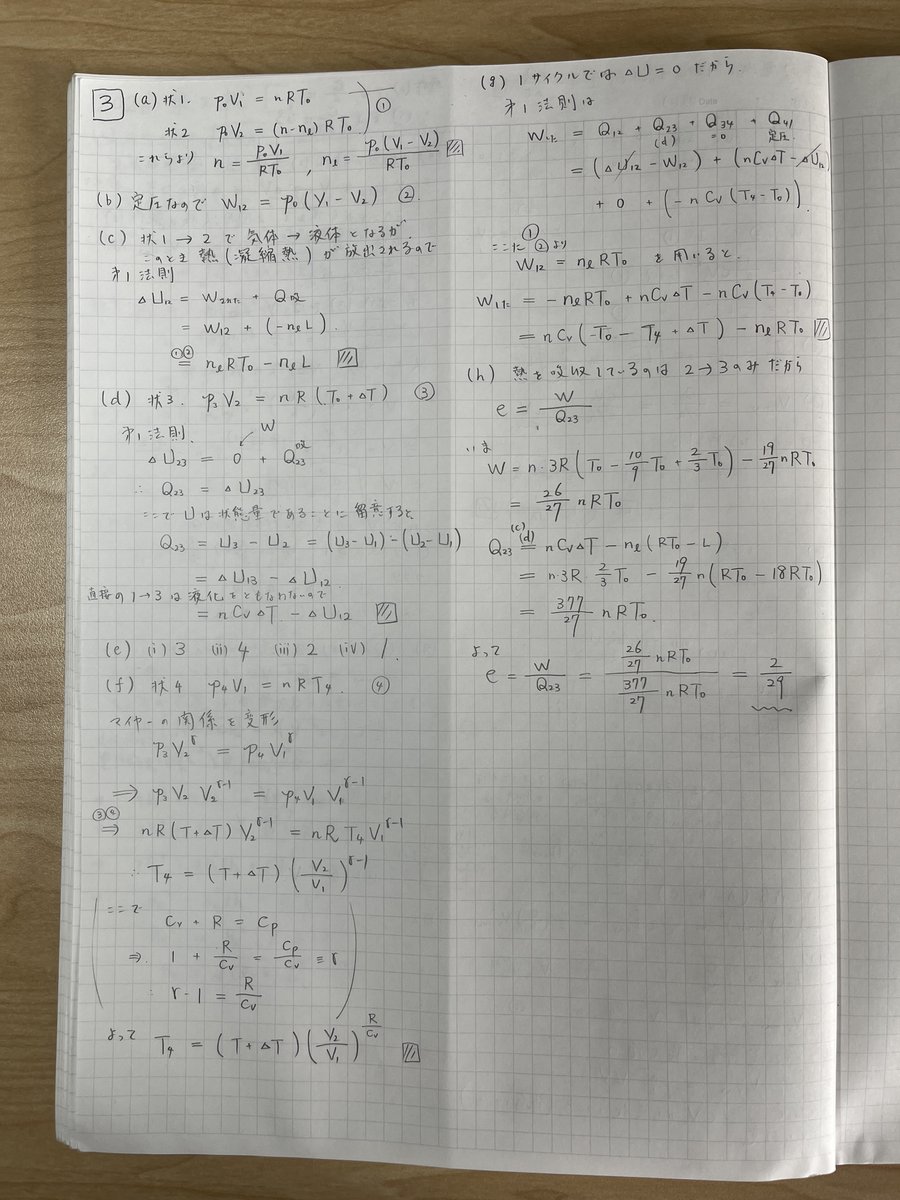 3 (a) 状1. p₀V₁ = nRT₀
状2 p₀V₂ = (n-nℓ)RT₀ ①
これらより n = p₀V₁/RT₀ , nℓ = p₀(V₁-V₂)/RT₀
(b) 定圧なので W₁₂ = p₀(V₁-V₂) ②
(c) 状1→2で気体→液体となるが
このとき熱(凝縮熱)が放出されるので
第1法則
ΔU₁₂ = Wされた + Q吸
= W₁₂ + (-nℓL).
①②= nℓRT₀ - nℓL
(d) 状3. p₃V₂ = nR(T₀+ΔT) ③
第1法則. W
ΔU₂₃ = 0 + Q₂₃吸
∴ Q₂₃ = ΔU₂₃
ここでUは状態量であることに留意すると
Q₂₃ = U₃ - U₂ = (U₃-U₁)-(U₂-U₁)
= ΔU₁₃ - ΔU₁₂
直接の1→3は液化をともなわないので
= nCvΔT - ΔU₁₂
(e) (i) 3 (ii) 4 (iii) 2 (iv) 1.
(f) 状4 p₄V₁ = nRT₄. ④
マイヤーの関係を変形
p₃V₂^γ = p₄V₁^γ
⇒ p₃V₂ V₂^(γ-1) = p₄V₁ V₁^(γ-1)
③④⇒ nR(T+ΔT)V₂^(γ-1) = nRT₄V₁^(γ-1)
∴ T₄ = (T+ΔT)(V₂/V₁)^(γ-1)
ここで
Cv + R = Cp
⇒ 1 + R/Cv = Cp/Cv ≡ γ
∴ γ-1 = R/Cv
よって T₄ = (T+ΔT)(V₂/V₁)^(R/Cv)
(g) 1サイクルではΔU=0だから.
第1法則は
Wした = Q₁₂ + Q₂₃ + Q₃₄ + Q₄₁
(d) =0 定圧.
= (ΔU₁₂ - W₁₂) + (nCvΔT - ΔU₁₂)
+ 0 + (-nCv(T₄-T₀)).
ここに①②より
W₁₂ = nℓRT₀ を用いると.
Wした = -nℓRT₀ + nCvΔT - nCv(T₄-T₀)
= nCv(T₀ - T₄ + ΔT) - nℓRT₀
(h) 熱を吸収しているのは2→3のみだから
e = W/Q₂₃
いま
W = n·3R(T₀ - 10/9 T₀ + 2/3 T₀) - 19/27 nRT₀
= 26/27 nRT₀
Q₂₃ (c)(d)= nCvΔT - nℓ(RT₀-L)
= n·3R·2/3 T₀ - 19/27 n(RT₀-18RT₀)
= 377/27 nRT₀.
よって
e = W/Q₂₃ = (26/27 nRT₀)/(377/27 nRT₀) = 2/29